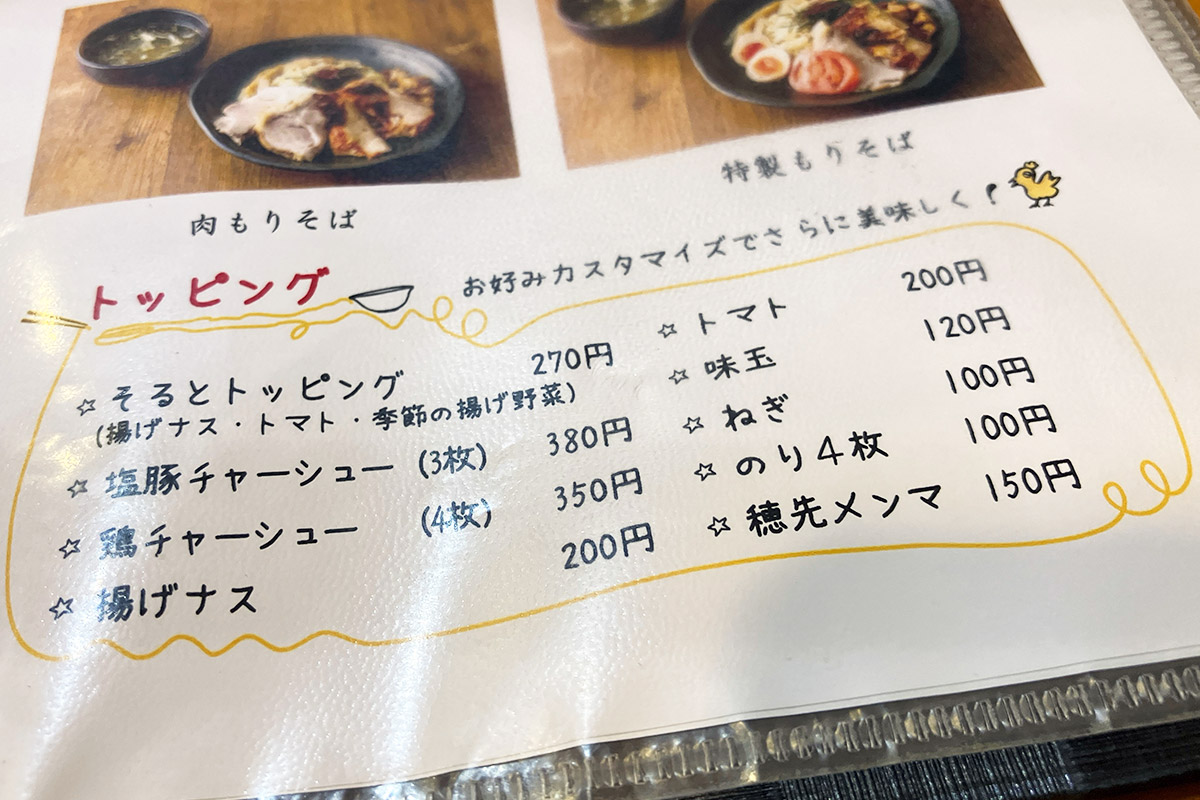 肉もりそば
特製もりそば
トッピング
お好みカスタマイズでさらに美味しく!
☆ そるとトッピング 270円
(揚げナス・トマト・季節の揚げ野菜)
☆ 塩豚チャーシュー (3枚) 380円
☆ 鶏チャーシュー (4枚) 350円
☆ 揚げナス 200円
☆ トマト 200円
☆ 味玉 120円
☆ ねぎ 100円
☆ のり4枚 100円
☆ 穂先メンマ 150円